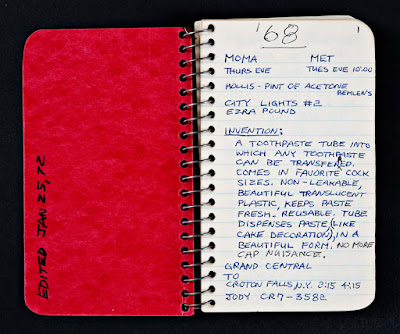 EDITED JAN 25, 72
'68
MOMA MET
THURS EVE TUES EVE 10:00
HOLLIS - PINT OF ACETONE
BEHLEN'S
CITY LIGHTS #2
EZRA POUND
INVENTION:
A TOOTHPASTE TUBE INTO
WHICH ANY TOOTHPASTE
CAN BE TRANSFERED.
COMES IN FAVORITE COCK
SIZES. NON-LEAKABLE,
BEAUTIFUL TRANSLUCENT
PLASTIC, KEEPS PASTE
FRESH. REUSABLE. TUBE
DISPENSES PASTE (LIKE
CAKE DECORATION) IN A
BEAUTIFUL FORM. NO MORE
CAP NUISANCE.
GRAND CENTRAL
TO
CROTON FALLS, N.Y. 2:15 4:15
JODY CR7-3582